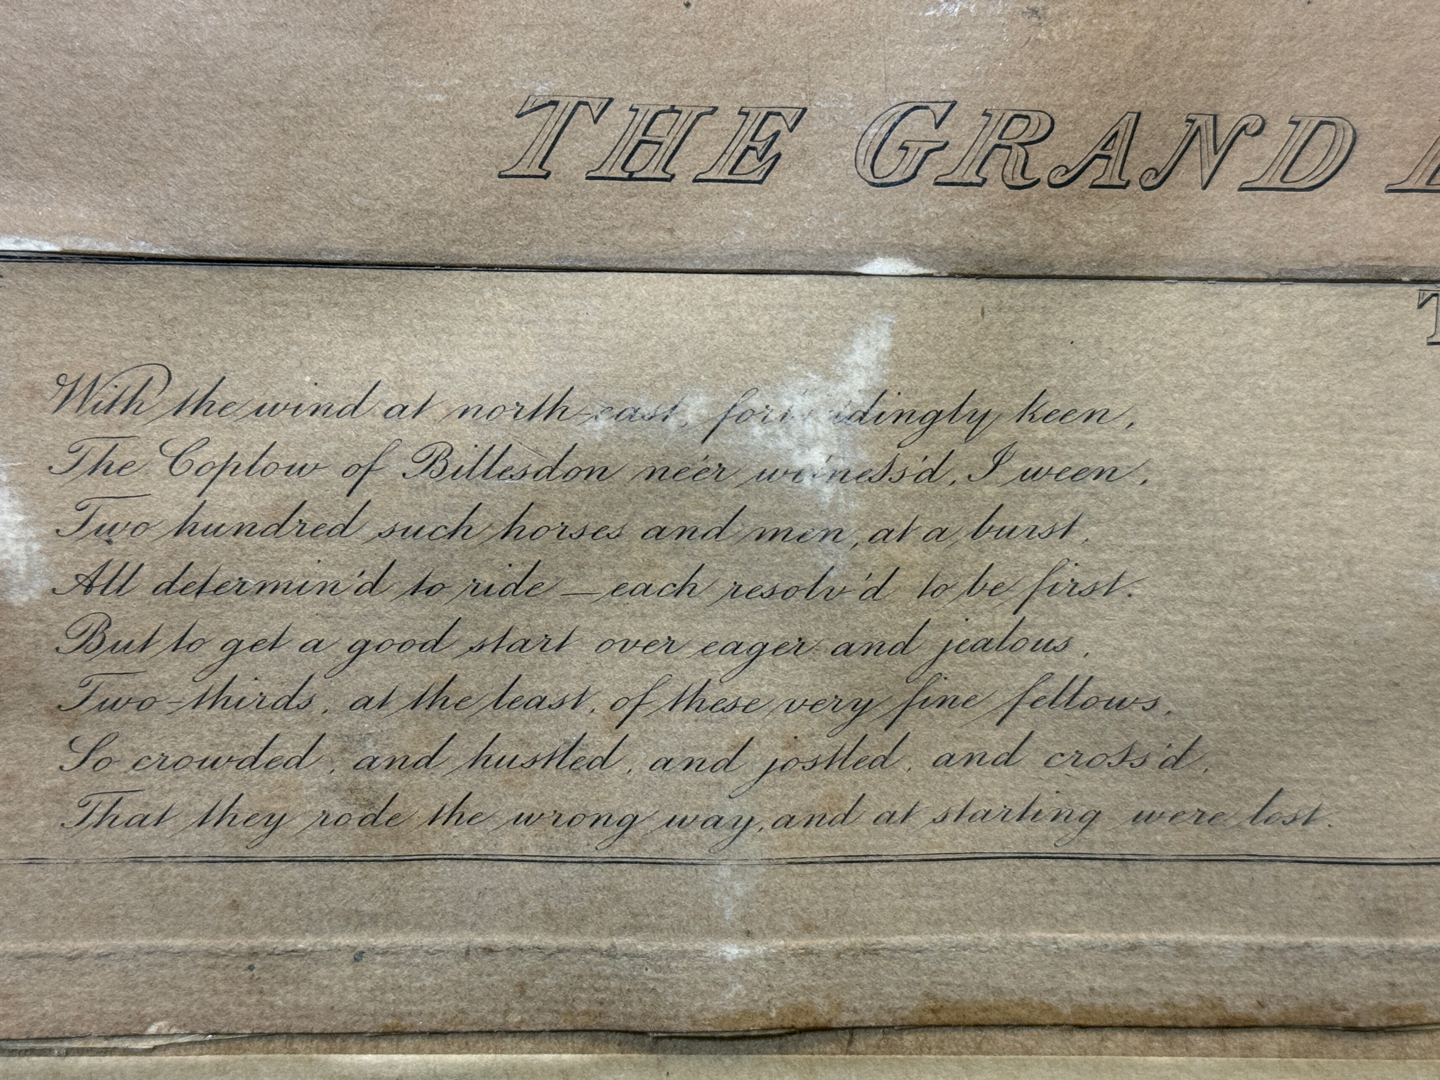 THE GRAND
With the wind at north-east, forbiddingly keen,
The Coplow of Billesdon ne'er witness'd, I ween,
Two hundred such horses and men, at a burst,
All determin'd to ride — each resolv'd to be first.
But to get a good start over eager and jealous,
Two-thirds, at the least, of these very fine fellows,
So crowded, and hustled, and jostled, and cross'd,
That they rode the wrong way, and at starting were lost.